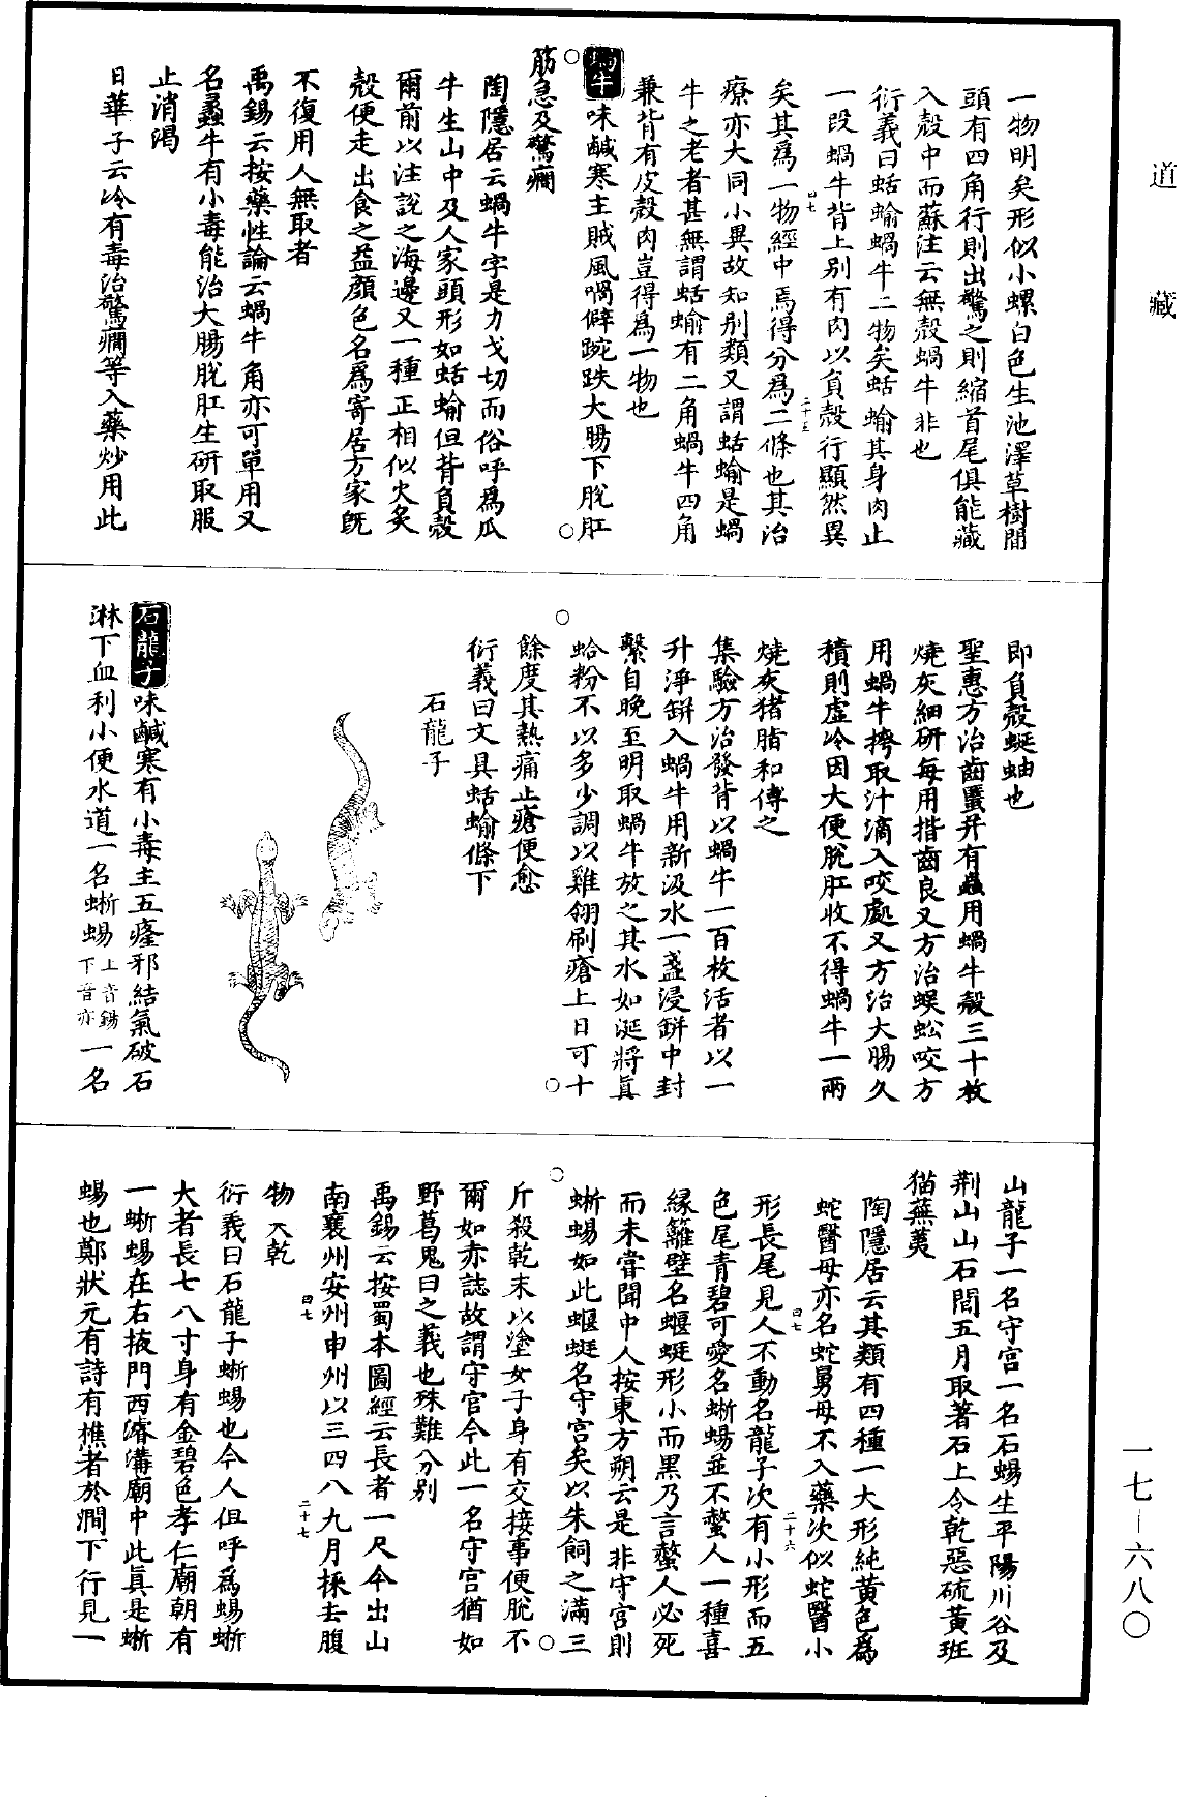 道藏
一物明矣形似小螺白色生池澤草樹間
頭有四角行則出驚之則縮首尾俱能藏
入殼中而蘇注云無殼蝸牛非也
衍義曰蛞蝓蝸牛二物矣蛞蝓其身肉止
一段蝸牛背上別有肉以負殼行顯然異
四七
二十五
矣其為一物經中焉得分為二條也其治
療亦大同小異故知別類又謂蛞蝓是蝸
牛之老者甚無謂蛞蝓有二角蝸牛四角
兼背有皮殼肉豈得為一物也
蝸牛味鹹寒主賊風喎僻踠跌大腸下脫肛
筋急及驚癇
陶隱居云蝸牛字是力戈切而俗呼為瓜
牛生山中及人家頭形如蛞蝓但背負殼
爾前以注說之海邊又一種正相似火炙
殼便走出食之益顏色名為寄居方家既
不復用人無取者
禹錫云按藥性論云蝸牛角亦可單用又
名蠡牛有小毒能治大腸脫肛生研取服
止消渴
日華子云冷有毒治驚癇等入藥炒用此
即負殼蜒蚰也
聖惠方治齒䘌并有蟲用蝸牛殼三十枚
燒灰細研每用揩齒良又方治蜈蚣咬方
用蝸牛搾取汁滴入咬處又方治大腸久
積則虛冷因大便脫肛收不得蝸牛一兩
燒灰猪脂和傅之
集驗方治發背以蝸牛一百枚活者以一
升淨缾入蝸牛用新汲水一盞浸缾中封
繫自晚至明取蝸牛放之其水如涎將真
蛤粉不以多少調以雞翎刷瘡上日可十
餘度其熱痛止瘡便愈
衍義曰文具蛞蝓條下
石龍子
石龍子味鹹寒有小毒主五癃邪結氣破石
淋下血利小便水道一名蜥蜴上音錫下音亦一名
山龍子一名守宮一名石蜴生平陽川谷及
荆山山石間五月取著石上令乾惡硫黃班
猫蕪荑
陶隱居云其類有四種一大形純黃色為
蛇醫母亦名蛇舅母不入藥次似蛇醫小
四七
二十六
形長尾見人不動名龍子次有小形而五
色尾青碧可愛名蜥蜴並不螫人一種喜
緣籬壁名蝘蜓形小而黑乃言螫人必死
而未嘗聞中人按東方朔云是非守宮則
蜥蜴如此蝘蜓名守宮矣以朱飼之滿三
斤殺乾末以塗女子身有交接事便脫不
爾如赤誌故謂守宮今此一名守宮猶如
野葛鬼臼之義也殊難分別
禹錫云按蜀本圖經云長者一尺今出山
南襄州安州申州以三四八九月採去腹
四七
二十七
物火乾
衍義曰石龍子蜥蜴也今人但呼為蜴蜥
大者長七八寸身有金碧色孝仁廟朝有
一蜥蜴在右掖門西濬溝廟中此真是蜥
蜴也鄭狀元有詩有樵者於澗下行見一
一七—六八〇